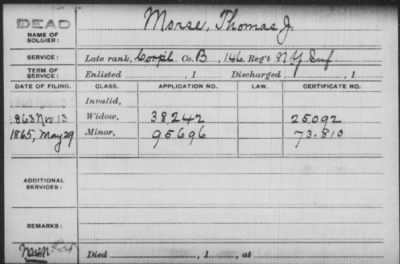 DEAD
NAME OF SOLDIER: Morse, Thomas J.
SERVICE: Late rank, Corp'l Co. B, 146 Reg't N.Y. Inf
TERM OF SERVICE: Enlisted , 1 Discharged , 1
DATE OF FILING. CLASS. APPLICATION NO. LAW. CERTIFICATE NO.
Invalid,
1863 Nov. 13 Widow, 38,242 25092
1865, May 29 Minor, 95696 73.810
ADDITIONAL SERVICES:
REMARKS:
Died , 1 , at